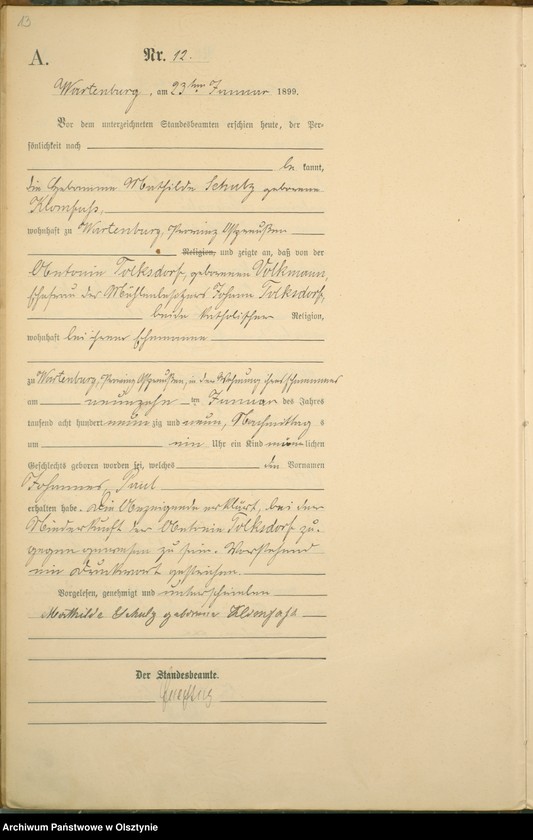 13
A.
Nr. 12.
Wartenburg, am 23ten Januar 1899.
Vor dem unterzeichneten Standesbeamten erschien heute, der Per-
sönlichkeit nach
be kannt,
die Hebamme Mathilde Schulz geborene
Klomfaß,
wohnhaft zu Wartenburg, Provinz Ostpreußen
Religion, und zeigte an, daß von der
Antonie Tolksdorf, geborenen Volkmann,
Ehefrau des Mühlenbesitzers Johann Tolksdorf,
beide katholischer Religion,
wohnhaft bei ihrem Ehemanne
zu Wartenburg, Provinz Ostpreußen, in der Wohnung ihres Ehemannes
am neunzehn ten Januar des Jahres
tausend acht hundert neun zig und neun, Nachmittag s
um ein Uhr ein Kind männlichen
Geschlechts geboren worden sei, welches den Vornamen
Johannes Paul
erhalten habe. Die Anzeigende erklärt, bei der
Niederkunft der Antonie Tolksdorf zu-
gegen gewesen zu sein. Vorstehend
ein Druckwort gestrichen.
Vorgelesen, genehmigt und unterschrieben
Mathilde Schulz geborene Klomfaß
Der Standesbeamte.
Archiwum Państwowe w Olsztynie